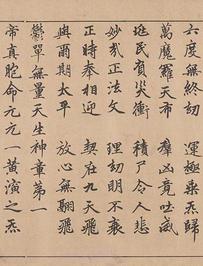 六度無終劫　運極乘炁歸
萬魔羅天布　群凶竟吐威
民負災衝　積尸令人悲
妙哉正法文　理明不衰
正時奉相迎　契在九天飛
與爾期太平　放心無翮飛
鬱單無量天生神章第一
帝真胞命元元一黄演之炁